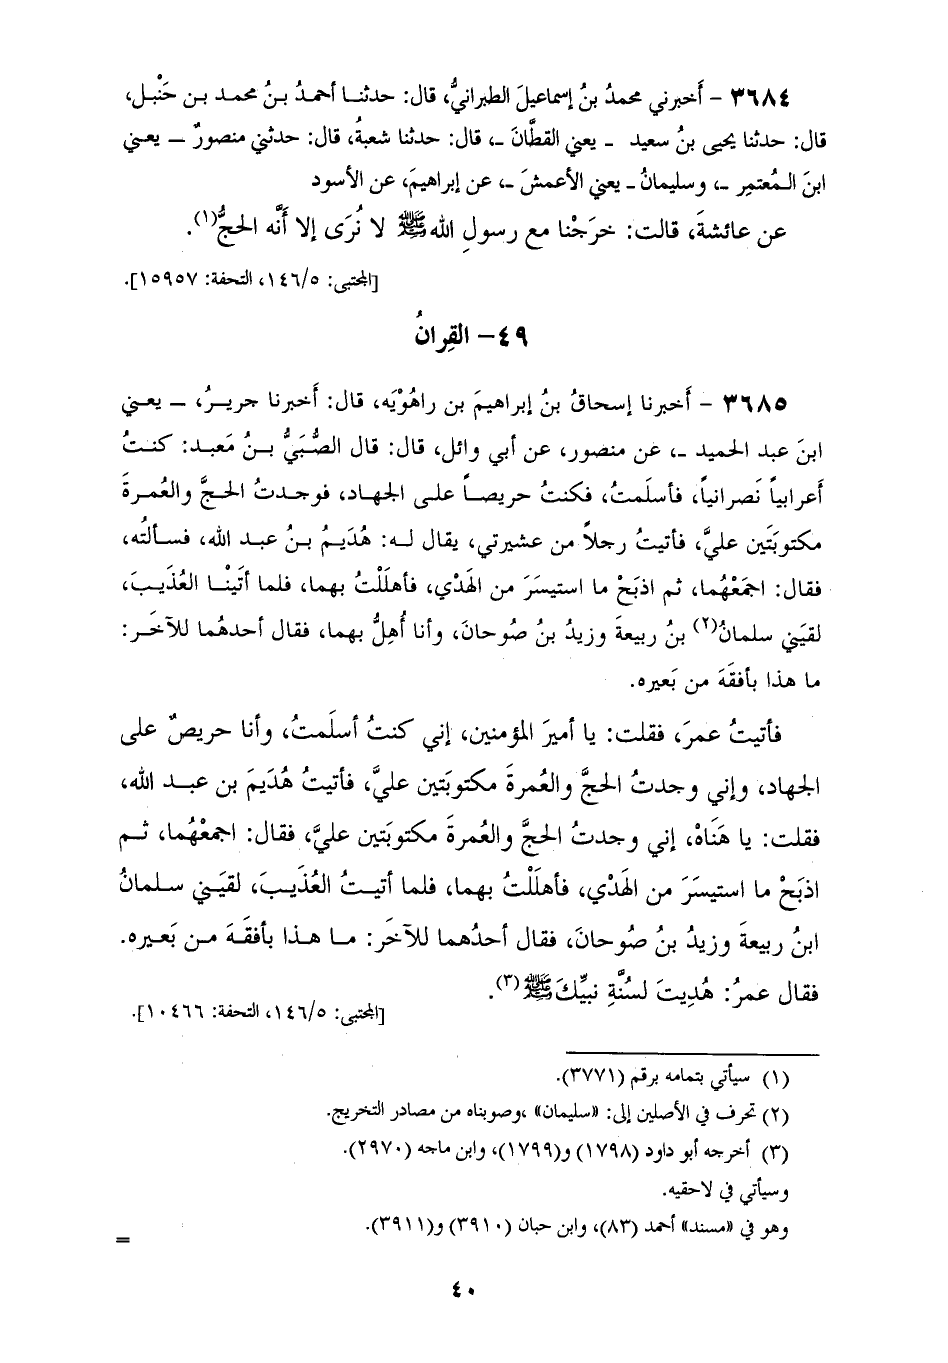 ٣٦٨٤ – أَخبرني محمدُ بنُ إسماعيلَ الطبرانيُّ، قال: حدثنا أحمدُ بنُ محمد بن حَنْبل،
قال: حدثنا يحيى بنُ سعيد - يعني القطَّانَ -، قال: حدثنا شعبةُ، قال: حدثني منصورٌ – يعني
ابنَ المُعتمِر -، وسليمانُ - يعني الأعمشَ -، عن إبراهيمَ، عن الأسود
عن عائشةَ، قالت: خرَجْنا مع رسولِ الله ﷺ لا نُرَى إلا أَنَّه الحجُّ(١).
[المجتبى: ١٤٦/٥، التحفة: ١٥٩٥٧].
٤٩- القِرانُ
٣٦٨٥ – أَخبرنا إسحاقُ بنُ إبراهيمَ بن راهُوْيَه، قال: أَخبرنا جريرٌ، – يعني
ابنَ عبد الحميد -، عن منصور، عن أبي وائل، قال: قال الصُّبَيُّ بنُ مَعبد: كنتُ
أَعرابياً نَصرانياً، فأَسلَمتُ، فكنتُ حريصاً على الجهاد، فوجدتُ الحجَّ والعُمرةَ
مكتوبَتَين عليَّ، فأَتيتُ رجلاً من عشيرتي، يقال له: هُدَيمُ بنُ عبد الله، فسألتُه،
فقال: اجمَعْهُما، ثم اذبَحْ ما استيسَرَ من الهَدْي، فأَهلَلْتُ بهما، فلما أَتَيْنا العُذَيبَ،
لقيَني سلمانُ(٢) بنُ ربيعةَ وزيدُ بنُ صُوحانَ، وأنا أُهِلُّ بهما، فقال أحدهُما للآخَر:
ما هذا بأفقَهَ من بَعيره.
فأتيتُ عمرَ، فقلت: يا أميرَ المؤمنين، إني كنتُ أسلَمتُ، وأنا حريصٌ على
الجهاد، وإني وجدتُ الحجَّ والعُمرةَ مكتوبَتَين عليَّ، فأتيتُ هُدَيمَ بن عبد الله،
فقلت: يا هَنَاهْ، إني وجدتُ الحجَّ والعُمرةَ مكتوبَتَين عليَّ، فقال: اجمَعْهُما، ثم
اذبَحْ ما استيسَرَ من الهَدْي، فأهلَلْتُ بهما، فلما أتيتُ العُذَيبَ، لقيَني سلمانُ
ابنُ ربيعةَ وزيدُ بنُ صُوحانَ، فقال أحدُهما للآخَر: ما هذا بأفقَهَ من بَعيره.
فقال عمرُ: هُدِيتَ لسُنَّةِ نبيِّكَ ﷺ(٣).
[المجتبى: ١٤٦/٥، التحفة: ١٠٤٦٦].
(١) سيأتي بتمامه برقم (٣٧٧١).
(٢) تحرف في الأصلين إلى: «سليمان»، وصوبناه من مصادر التخريج.
(٣) أخرجه أبو داود (١٧٩٨) و(١٧٩٩)، وابن ماجه (٢٩٧٠).
وسيأتي في لاحقيه.
وهو في «مسند» أحمد (٨٣)، وابن حبان (٣٩١٠) و(٣٩١١).
=
٤٠